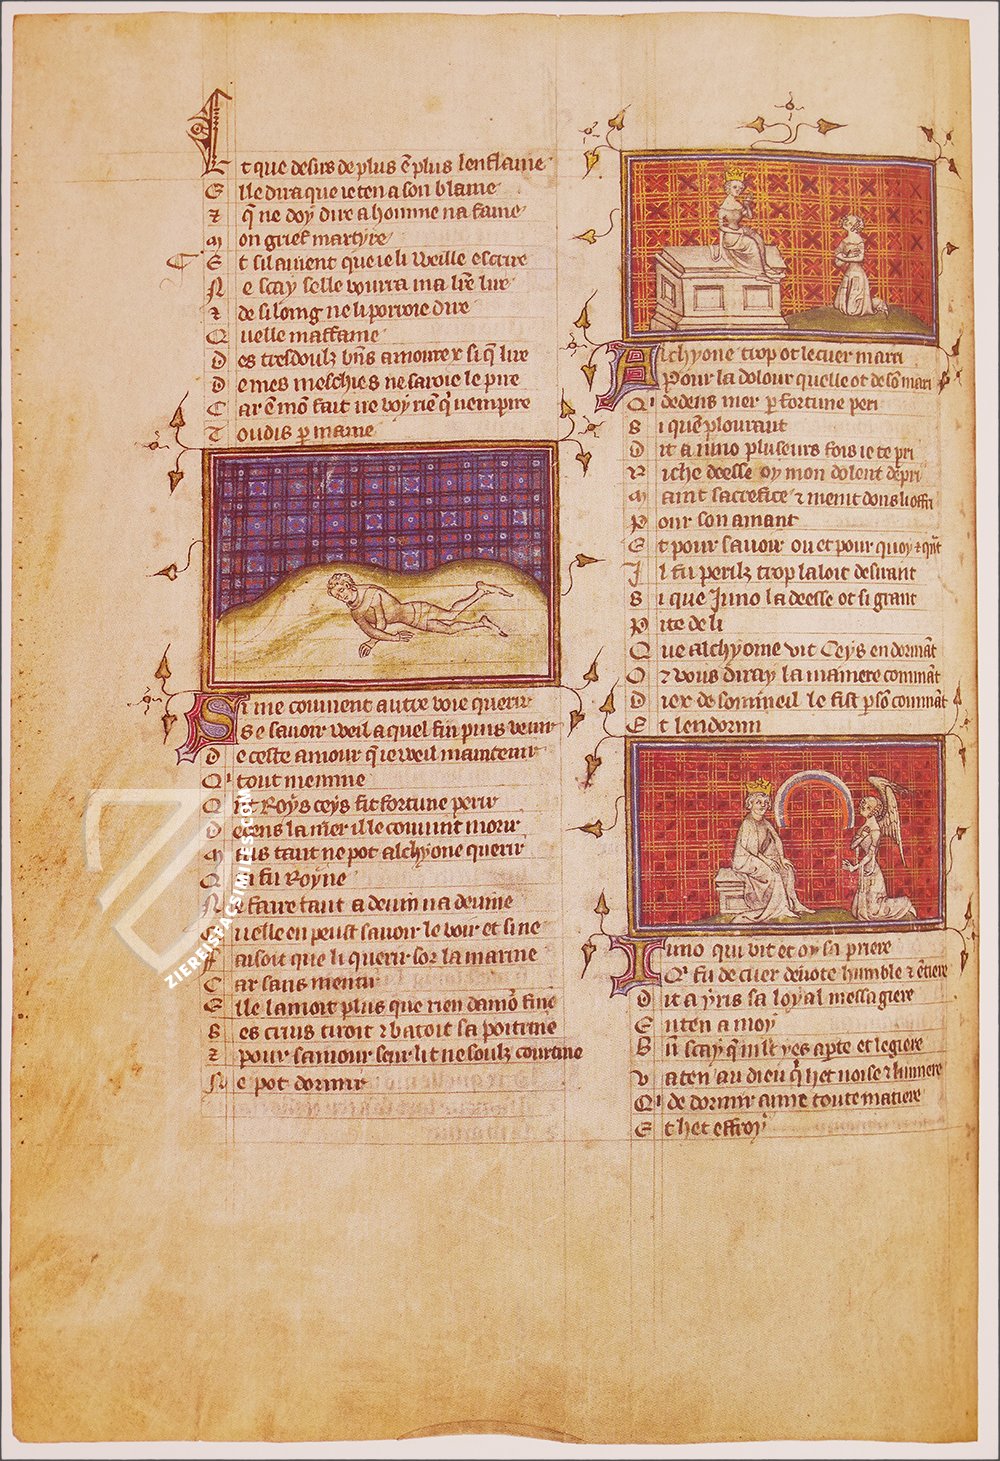 Et que desirs de plus e͂ plus lenflame
Elle dira que ie ten a son blame
⁊ q̃ ne doy dire a homme na fame
Mon grief martyre
Et sil auient que ie li weille escrire
Ne scay selle vourra ma lr̃e lire
⁊ de si loing ne li porroie dire
Quelle maffame
Des tresdoulz bñs amoureℯ si q̃ lire
De mes meschies ne saroie le pire
Car e͂ mõ fait ie voy riẽ q̃ nempire
Toudis p̱ mame
Si me couuient autre voie querir
Se sauoir weil a quel fin puis venir
De ceste amour q̃ ie weil maintenir
Qⁱ tout memme
Qnt Roys ceys fit fortune perir
Dedens la mer il le conuint morir
Mais tant ne pot alchyone querir
Qui fu Royne
Ne faire tant a deuin na deuine
Quelle en peust sauoir le voir et si ne
Faisoit que li querir sor la marine
Car sans mentir
Elle lamoit plus que rien damõ fine
Ses crins tiroit ⁊ batoit sa poitrine
⁊ pour samour seur lit ne soulz courtine
Ne pot dormir
Alchyone trop ot le cuer marri
Pour la dolour quelle ot de sõ mari
Qⁱ dedens mer p̱ fortune peri
Si quẽ plourant
Dit a iuno pluseurs fois ie te pri
Riche deesse oy mon dolent depri
Maint sacrefice ⁊ meint dons li offri
Pour son amant
Et pour sauoir ou et pour quoy ⁊ qñt
Il fu perilz trop laloit desirant
Si que Iuno la deesse ot si grant
Pite de li
Que alchyome vit Ceys en dormãt
Or vous diray la maniere commãt
Diex de sommeil le fist p̱ sõ commãt
Et lendormi
Iuno qui vit et oy sa priere
Qⁱ fu de cuer deuote humble ⁊ ẽtiere
Dit a yris sa loyal messagiere
Enten a moy
Bñ scay q̃ mlt yes apte et legiere
Va ten au dieu q̃ het noise ⁊ lumiere
Qⁱ de dormir aime toute matiere
Et het effroy
ZIEREISFACSIMILES.COM